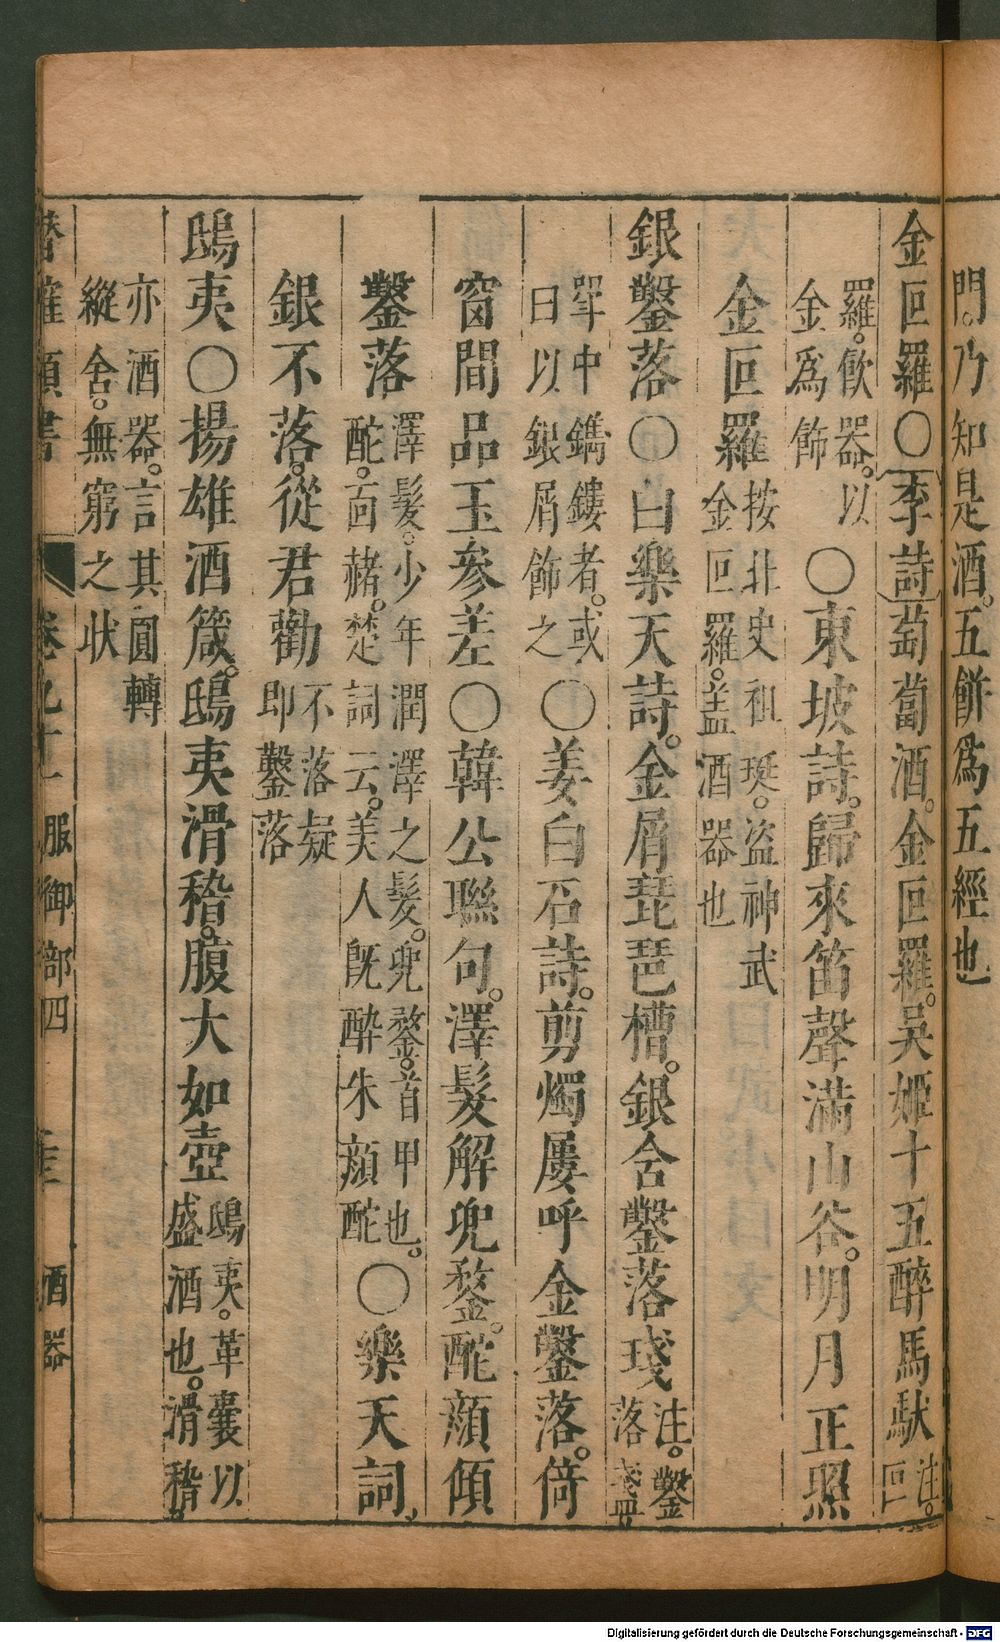 門。乃知是酒。五餅爲五經也
金叵羅〇李詩萄蔔酒。金叵羅。吳姬十五醉馬馱注。叵
羅。飲器。以金爲飾〇東坡詩。歸來笛聲滿山谷。明月正照
金叵羅按北史祖珽。盜神武金叵羅。盖酒器也
銀鑿落〇白樂天詩。金屑琵琶槽。銀含鑿落琖注。鑿落盞
斝中鐫鏤者。或曰以銀屑飾之〇姜白石詩。剪燭屢呼金鑿落。倚
窗間品玉參差〇韓公聯句。澤髮解兜鍪。酡顔傾
鑿落澤髮。少年潤澤之髮。兜鍪。首甲也。酡。面赭。楚詞云。美人旣酔朱顔酡〇樂天詞。
銀不落。從君勸不落疑即鑿落
鴟夷〇揚雄酒箴。鴟夷滑稽。腹大如壺鴟夷。革囊以盛酒也。滑稽。
亦酒器。言其圓轉縱舍。無窮之状
潛確類書 卷九十 服御部四 酒器
Digitalisierung gefördert durch die Deutsche Forschungsgemeinschaft - DFG